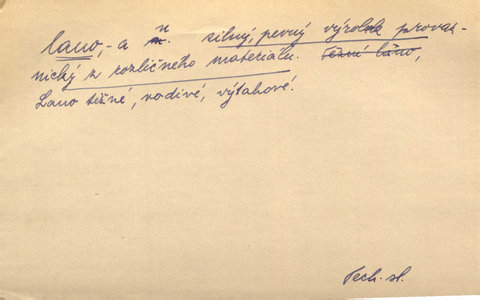 lano, -a n. silný, pevný výrobok povraz-
nícky z rozličného materialu. Ťažné lano,
Lano ťažné, vodivé, výťahové.
Tech. sl.